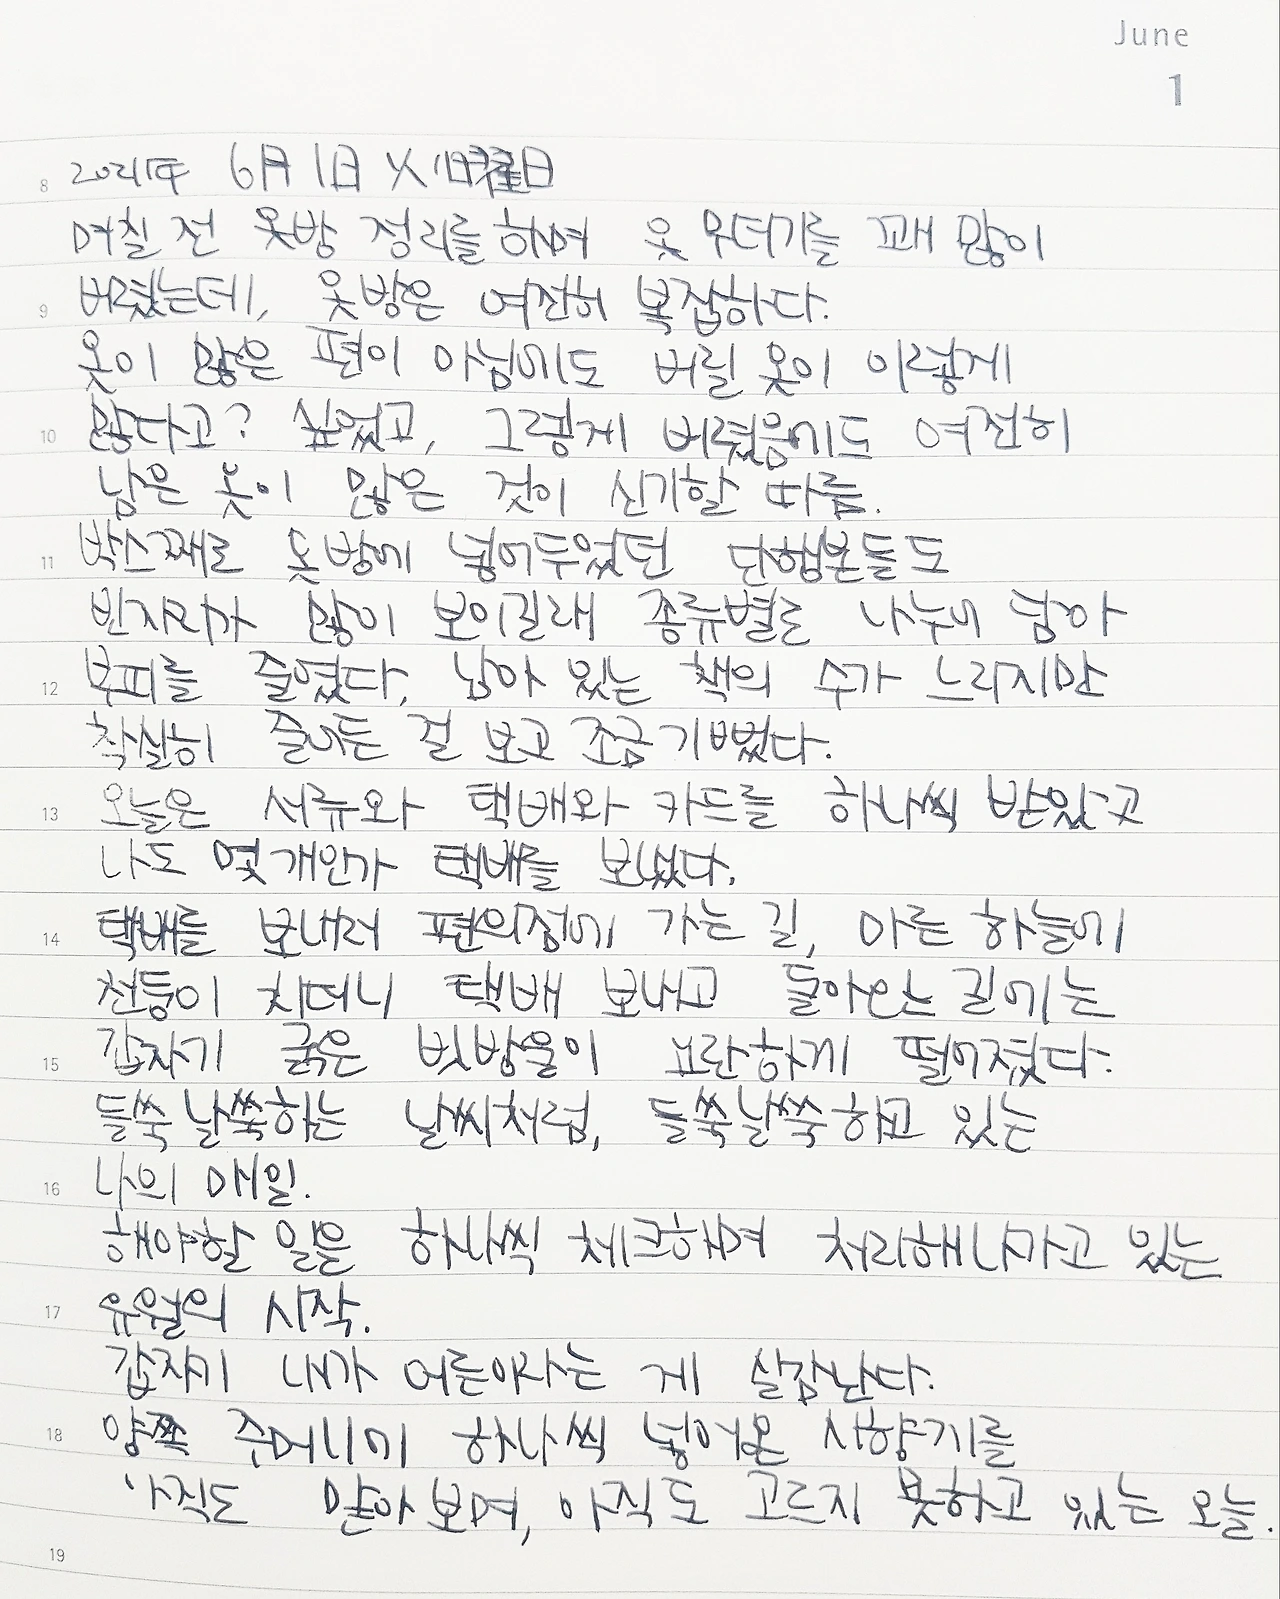 June
1
8 2021年 6月 1日 火曜日
며칠 전 옷방 정리를 하며 옷 무더기를 꽤 많이
9 버렸는데, 옷방은 여전히 복잡하다.
옷이 많은 편이 아님에도 버릴 옷이 이렇게
10 많다고? 싶었고, 그렇게 버렸음에도 여전히
남은 옷이 많은 것이 신기할 따름.
11 박스째로 옷방에 넣어두었던 단행본들도
빈자리가 많이 보이길래 종류별로 나누어 담아
12 부피를 줄였다. 남아 있는 책의 수가 느리지만
착실히 줄어든 걸 보고 조금 기뻤다.
13 오늘은 서류와 택배와 카드를 하나씩 받았고
나도 몇 개인가 택배를 보냈다.
14 택배를 보내러 편의점에 가는 길, 마른 하늘에
천둥이 치더니 택배 보내고 돌아오는 길에는
15 갑자기 굵은 빗방울이 요란하게 떨어졌다.
들쑥날쑥하는 날씨처럼, 들쑥날쑥하고 있는
16 나의 매일.
해야할 일을 하나씩 체크하며 처리해나가고 있는
17 유월의 시작.
갑자기 내가 어른이라는 게 실감난다.
18 양쪽 주머니에 하나씩 넣어온 사향기를
아직도 맡아 보며, 아직도 고르지 못하고 있는 오늘.
19